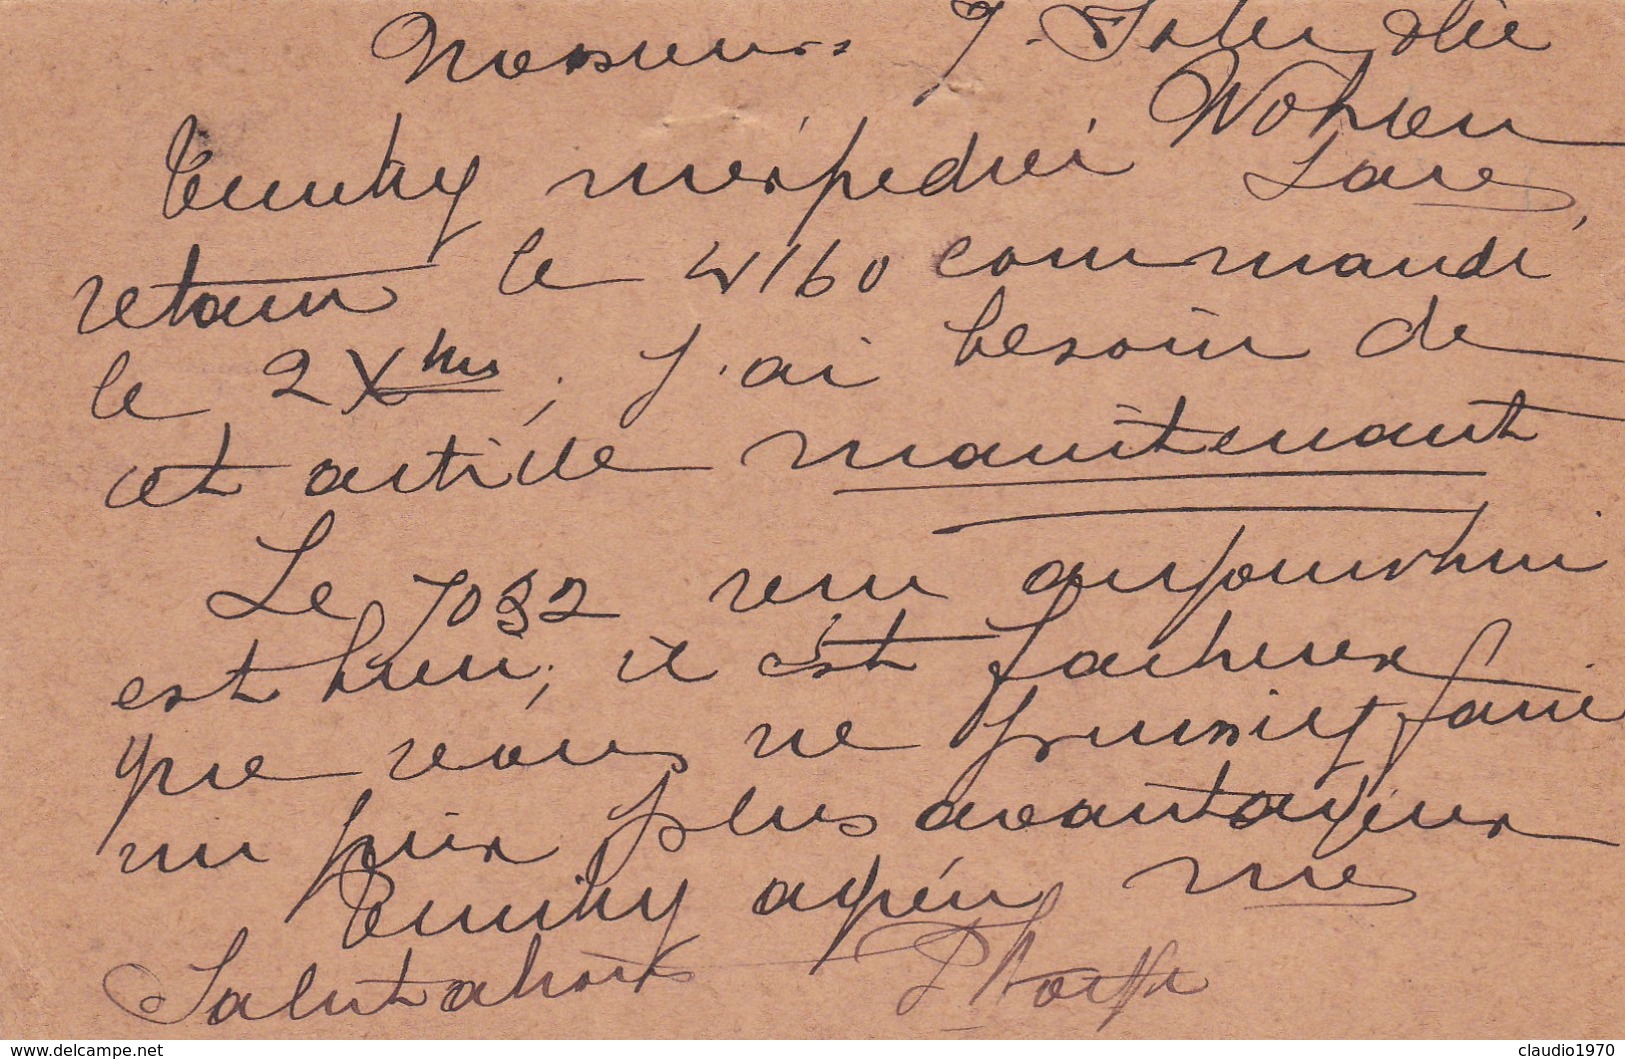 Messieurs J. Isler & Cie
Wohlen
Veuillez m'expédier sans
retour le 4160 commandé
le 2 Xbre, j'ai besoin de
cet article maintenant
Le 7032 reçu aujourd'hui
est bien, il est facheux
que vous ne puissiez faire
un prix plus avantageux
Veuillez agréer mes
Salutations
delcampe.net
claudio1970